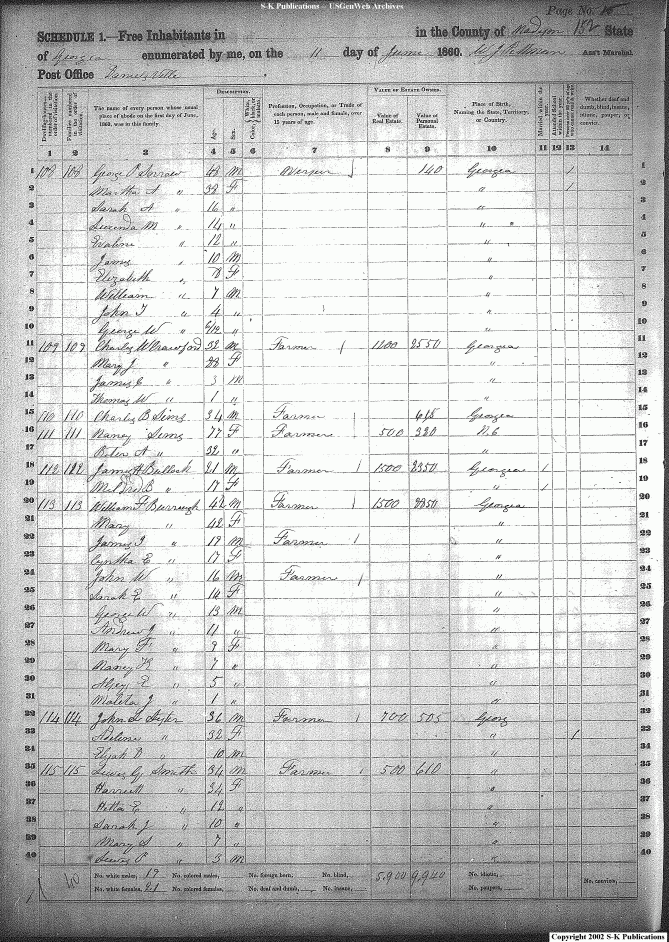 S-K Publications -- USGenWeb Archives
Page No. 15
152
SCHEDULE 1.—Free Inhabitants in in the County of Madison State
of Georgia enumerated by me, on the 11 day of June 1860. Ass't Marshal.
Post Office Danielsville
Dwelling-houses—numbered in the order of visitation.
Families numbered in the order of visitation.
The name of every person whose usual place of abode on the first day of June, 1860, was in this family.
DESCRIPTION.
Age.
Sex.
Color, White, black, or mulatto.
Profession, Occupation, or Trade of each person, male and female, over 15 years of age.
VALUE OF ESTATE OWNED.
Value of Real Estate.
Value of Personal Estate.
Place of Birth, Naming the State, Territory, or Country.
Married within the year.
Attended School within the year.
Whether deaf and dumb, blind, insane, idiotic, pauper, or convict.
1 2 3 4 5 6 7 8 9 10 11 12 13 14
1 108 108 George P Sorrow 48 M 140 Georgia 1 1
2 Martha A " 38 F " 1 2
3 Sarah A " 16 " " 3
4 Lucinda M " 14 " " 4
5 Evaline " 12 " " 5
6 James " 10 M " 6
7 Elizabeth " 8 F " 7
8 William " 7 M " 8
9 John T " 4 " " 9
10 George W " " " 10
11 109 109 Charles W Crawford 32 M Farmer 1 1200 2550 Georgia 11
12 Mary J " 28 F " 12
13 James E " 3 M " 13
14 Thomas W " 1 " " 14
15 110 110 Charles B Sims 34 M Farmer 1 615 Georgia 15
16 111 111 Nancy Sims 77 F Farmer 500 220 N.C 16
17 A " 32 " " 17
18 112 112 James A Bullock 21 M Farmer 1 1500 2350 Georgia 1 18
19 " 17 F " 1 19
20 113 113 William F Burrough 42 M Farmer 1 1500 2250 Georgia 20
21 Mary " 42 F " 21
22 James J " 19 M Farmer 1 " 22
23 Cyntha E " 17 F " 23
24 John W " 16 M Farmer 1 " 24
25 Sarah E " 14 F " 25
26 George W " 13 M " 26
27 Andrew J " 11 " " 27
28 Mary F " 9 F " 28
29 Nancy " 7 " " 29
30 E " 5 " " 30
31 J " 1 " " 31
32 114 114 John S 36 M Farmer 1 700 505 Georg 32
33 Adeline " 32 F " 1 33
34 Elijah D " 10 M " 34
35 115 115 Lewis G Smith 34 M Farmer 1 500 610 " 35
36 Harriett " 34 F " 36
37 E " 12 " " 37
38 Sarah J " 10 " " 38
39 Mary S " 7 " " 39
40 Lewis P " 3 M " 40
40 No. white males, 19 No. colored males, No. foreign born, No. blind, 5,900 9,940 No. idiotic, No. convicts,
No. white females, 21 No. colored females, No. deaf and dumb, No. insane, No. paupers,
Copyright 2002 S-K Publications